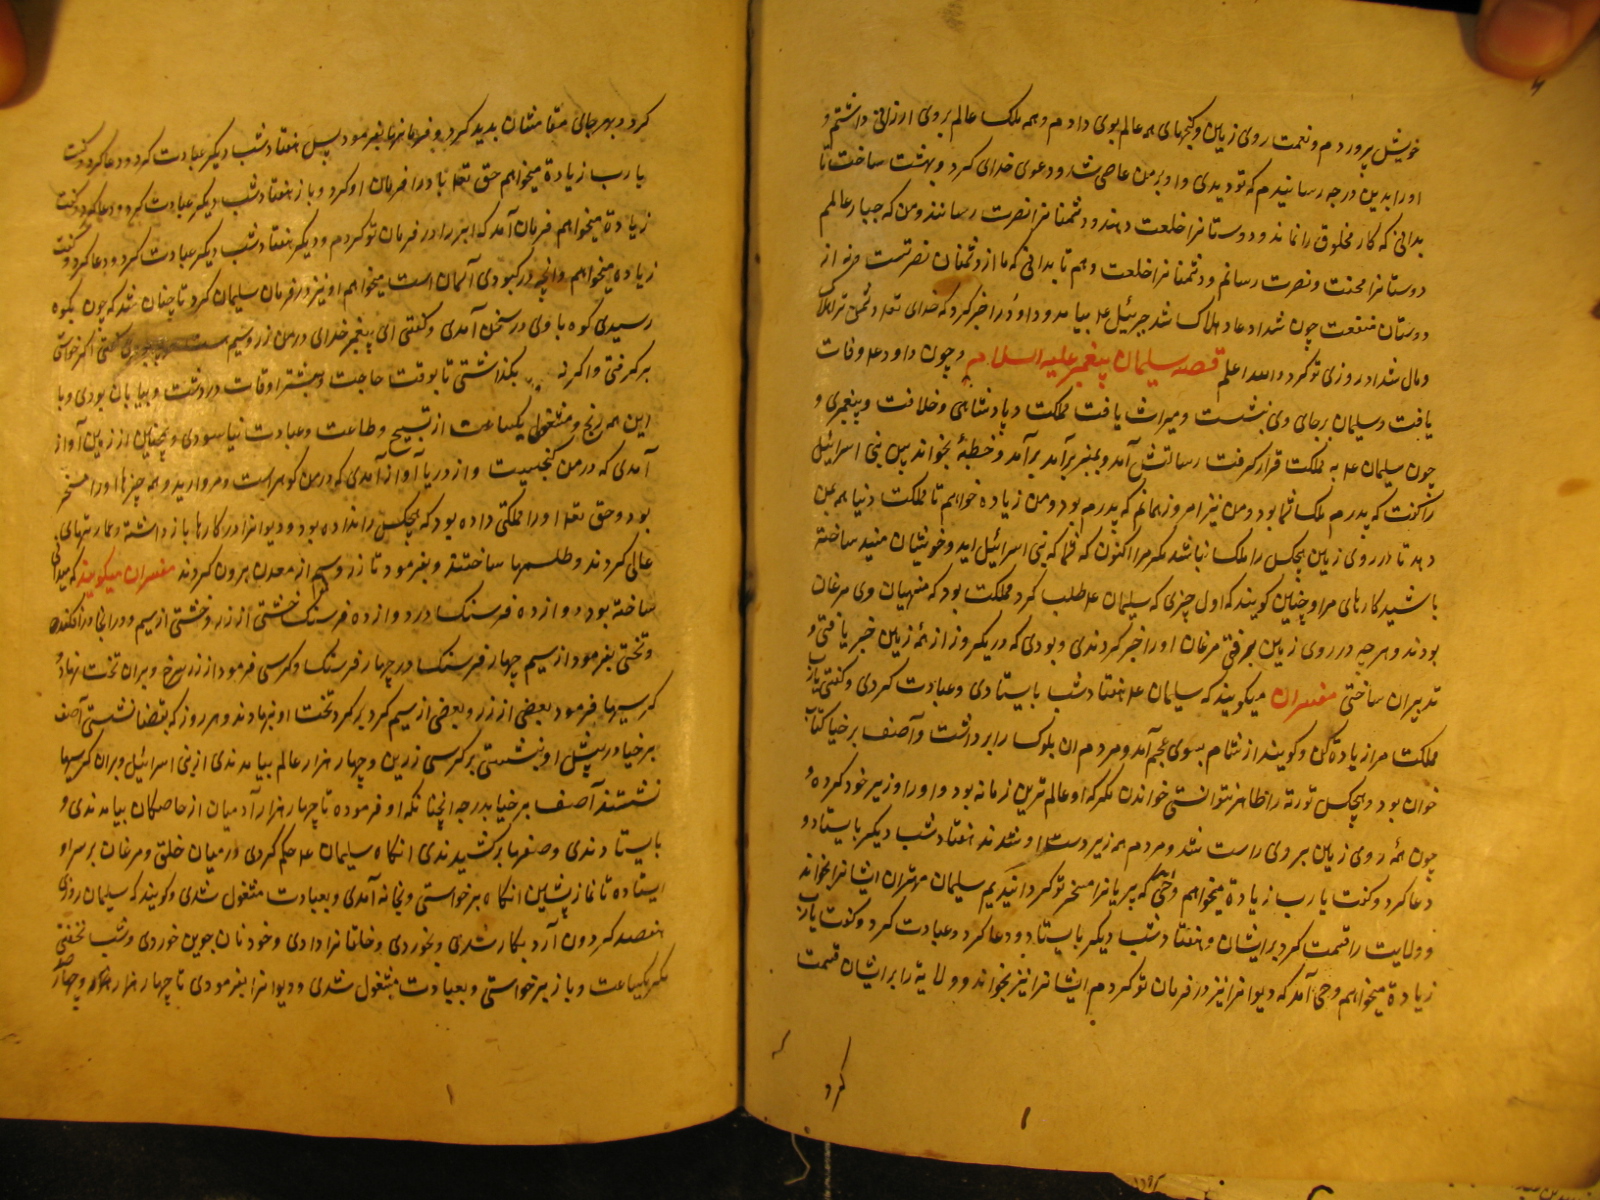 خویش پروردم و نعمت روی زمین و گنجهای همه عالم بوی دادم و همه ملک عالم بروی ارزانی داشتم و
اورا بدین درجه رسانیدم که تو دیدی و او بر من عاصی شد و دعوی خدای کرد و بهشت ساخت تا
بدانی که کار مخلوق را نماند و دوستانرا خلعت دهند و دشمنانرا نصرت رسانند و من که جبار عالمم
دوستانرا محنت و نصرت رسانم و دشمنانرا خلعت دهم تا بدانی که ما از دشمنان نصرتست و نه از
دوستان منفعت چون شداد عاد هلاک شد جبرئیل ع م بیامد و داود را خبر کرد که خدای تعه دشمن ترا هلاک
و مال شداد روزی تو کرد والله اعلم قصه سلیمان پیغمبر علیه السلام و چون داود ع م وفات
یافت و سلیمان برجای وی نشست و میراث یافت مملکت و پادشاهی و خلافت و پیغمبری و
چون سلیمان ع م به مملکت قرار گرفت رسالتش آمد و بمنبر برآمد و خطبهٔ بخواند پس بنی اسرائیل
را گفت که پدرم ملک شما بود و من نیز امروز همانم که پدرم بود و من زیاده خواهم تا مملکت دنیا همه بمن
دهد تا در روی زمین هیچکس را ملک نباشد مگر مرا اکنون که شما که بنی اسرائیل اید و خویشان منید ساخته
باشید کارهای مرا و چنین گویند که اول چیزی که سلیمان ع م طلب کرد مملکت بود که منهیان وی مرغان
بودند و هرچه در روی زمین برفتی مرغان اورا خبر کردندی و بودی که در یکروز از همهٔ زمین خبر یافتی و
تدبیر آن ساختی مفسران میگویند که سلیمان ع م هفتاد شب بایستادی و عبادت کردی و گفتی یارب
مملکت مرا زیاده کن و گویند از شام بسوی عجم آمد و مردم آن بلوک را برداشت و آصف برخیا کتاب
خوان بود و هیچکس تورته را ظاهر نتوانستی خواندن مگر که او عالم ترین زمانه بود و اورا وزیر خود کرده و
چون همهٔ روی زمین بر وی راست شد و مردم همه زیردست او شدند هفتاد شب دیگر بایستاد و
دعا کرد و گفت یارب زیادة میخواهم وحی آمد که پریانرا مسخر تو گردانیدیم سلیمان مهتران ایشانرا بخواند
و ولایت را قسمت کرد بر ایشان و هفتاد شب دیگر بایستاد و دعا کرد و عبادت کرد و گفت یارب
زیادة میخواهم وحی آمد که دیوانرا نیز در فرمان تو کردم ایشانرا نیز بخواند و ولایة را بر ایشان قسمت
کرد
کرد و بهر جای مقامشان پدید کرد و فرمانها بفرمود پس هفتاد شب دیگر عبادت کرد و دعا کرد و گفت
یارب زیادة میخواهم حق تعه باد را در فرمان او کرد و باز هفتاد شب دیگر عبادت کرد و دعا کرد و گفت
زیادة میخواهم فرمان آمد که ابر را در فرمان تو کردم و دیگر هفتاد شب دیگر عبادت کرد و دعا کرد و گفت
زیاده میخواهم و آنچه در کبودی آسمان است میخواهم او نیز در فرمان سلیمان کرد تا چنان شد که چون بکوه
رسیدی کوه با وی در سخن آمدی و گفتی ای پیغمبر خدای در من زر و سیم هست اگر خواستی
برگرفتی و اگر نه بگذاشتی تا بوقت حاجت و بیشتر اوقات در دشت و بیابان بودی و با
این همه رنج و مشغولی یکساعت از تسبیح و طاعت و عبادت نیاسودی و همچنین از زمین آواز
آمدی که در من گنجیست و از دریا آواز آمدی که در من گوهر است و مروارید و همه چیزها اورا مسخر
بود و حق تعه اورا مملکتی داده بود که هیچکس را نداده بود و دیوانرا در کارها بازداشته و عمارتهای
عالی کردند و طلسمها ساختند و بفرمود تا زر و سیم از معدن بیرون کردند مفسران میگویند که میدانی
ساخته بود دوازده فرسنگ در دوازده فرسنگ خشتی از زر و خشتی از سیم و در آنجا در افکنده
و تختی بفرمود از سیم چهار فرسنگ در چهار فرسنگ و کرسی فرمود از زر سرخ و بر آن تخت نهاد و
کرسیها فرمود بعضی از زر و بعضی از سیم گرد برگرد تخت او نهادند و هر روز که بقضا نشستی آصف
برخیا در پیش او نشستی بر کرسی زرین و چهار هزار عالم بیامدندی از بنی اسرائیل و بر آن کرسیها
نشستند آصف برخیا بدرجه آنچنانکه او فرموده تا چهار هزار آدمیان از خاصگان بیامدندی و
بایستادندی و صفها برکشیدندی آنگاه سلیمان ع م حکم کردی در میان خلق و مرغان بر سر او
ایستاده تا نماز پیشین آنگاه برخواستی و بخانه آمدی و بعبادت مشغول شدی و گویند که سلیمان روزی
هفصد گردون آرد بکار شدی و بخوردی و خلقانرا دادی و خود نان جوین خوردی و شب نخفتی
مگر یکساعت و باز برخواستی و بعبادت مشغول شدی و دیوانرا بفرمودی تا چهار هزار و چهار صد